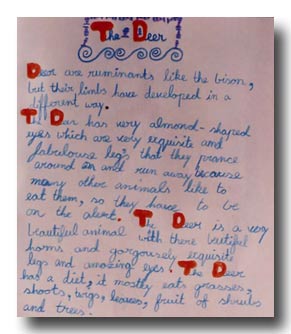 The Deer
Deer are ruminants like the bison,
but their limbs have developed in a
different way.
The Deer has very almond-shaped
eyes which are very exquisite and
fabelouse leg's that they prance
around on and run away because
many other animals like to
eat them, so they have to be
on the alert. The Deer is a very
beautiful animal with there beutiful
horns and gorgousely exquisite
legs and amazing eyes. The Deer
has a diet, it mostly eats grasses,
shoots, twigs, leaves, fruit of shrubs
and trees.